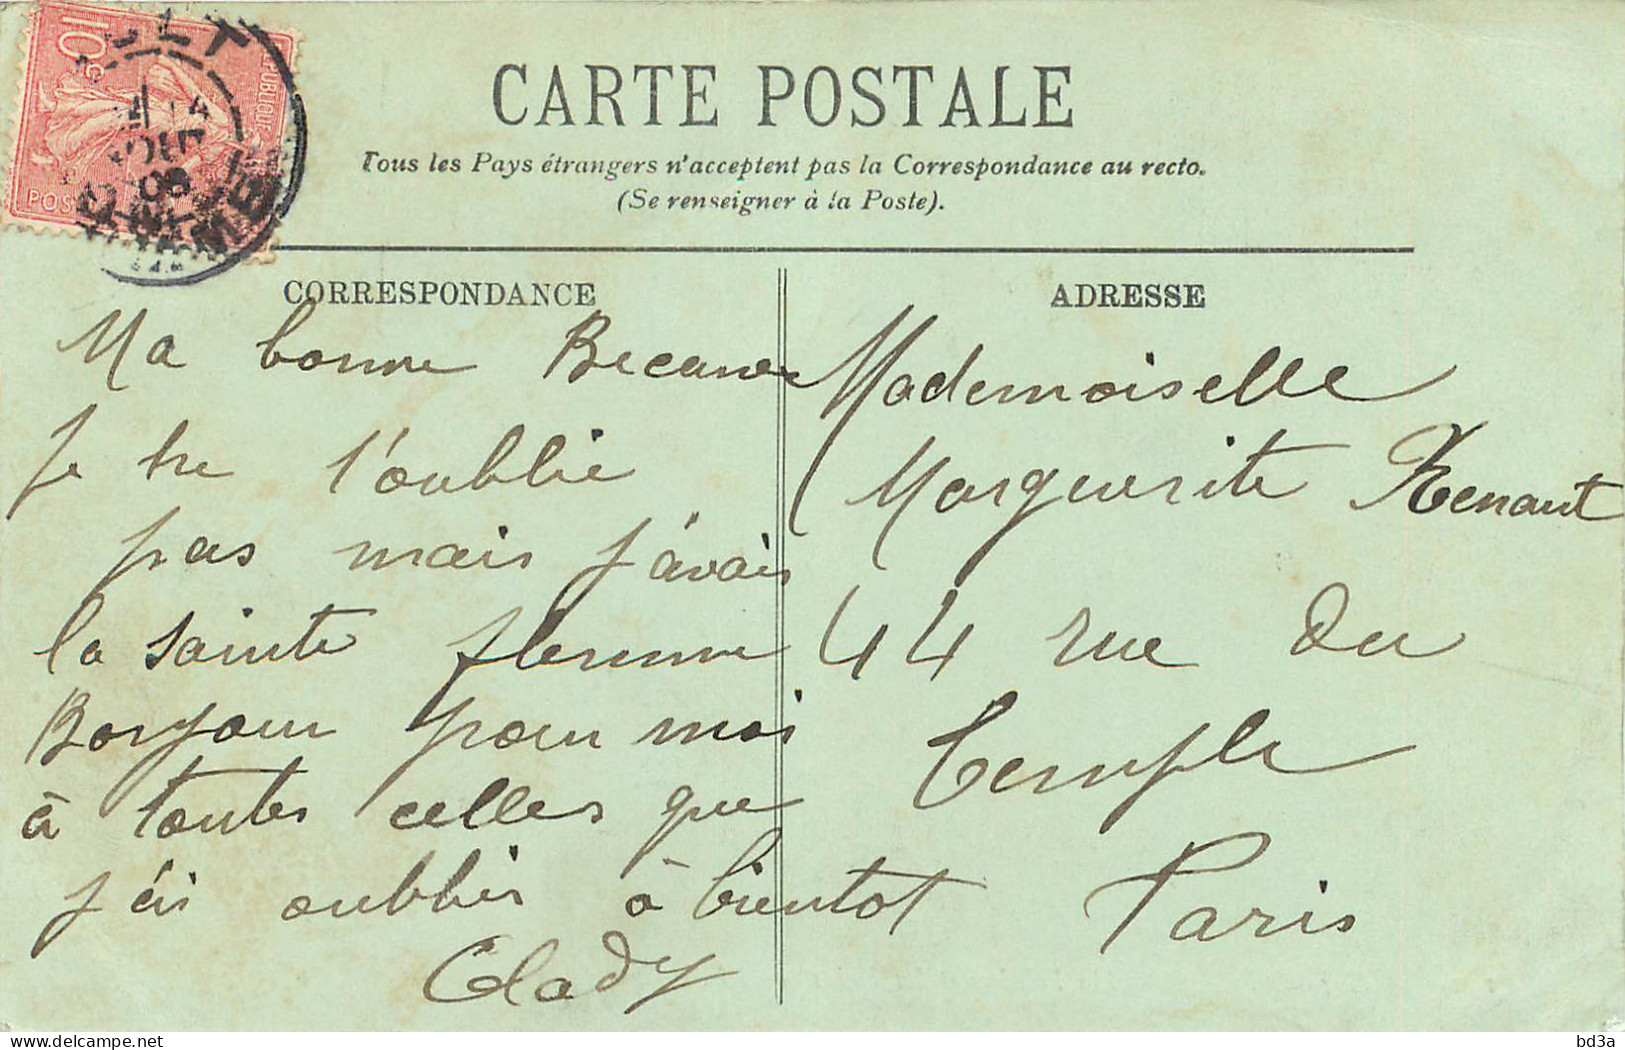 10c
POS
CARTE POSTALE
Tous les Pays étrangers n'acceptent pas la Correspondance au recto.
(Se renseigner à la Poste).
CORRESPONDANCE
Ma bonne Becane
Je ne t'oublie
pas mais j'avais
la sainte flemme
Bonjour pour moi
à toutes celles que
j'ai oubliés à bientot
Clady
ADRESSE
Mademoiselle
Marguerite Renaut
44 rue du
Temple
Paris
delcampe.net
bd3a